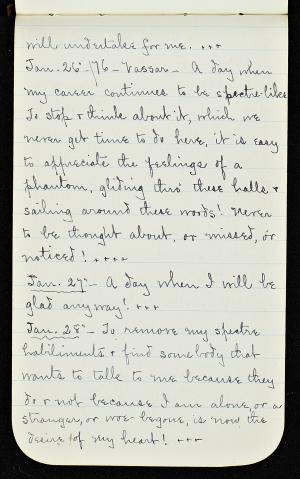 will undertake for me. +++
Jan. 26 - /76 - Vassar - A day when
my career continues to be spectre-like.
To stop & think about it, which we
never get time to do here, it is easy
to appreciate the feelings of a
phantom, gliding thro' these halls &
sailing around these words! Never
to be thought about, or missed, or
noticed! ++++
Jan. 27 - A day when I will be
glad anyway! +++
Jan. 28 - To remove my spectre
habiliments & find somebody that
wants to talk to me because they
do & not because I am alone, or a
stranger, or woe-begone, is now the
desire of my heart! +++